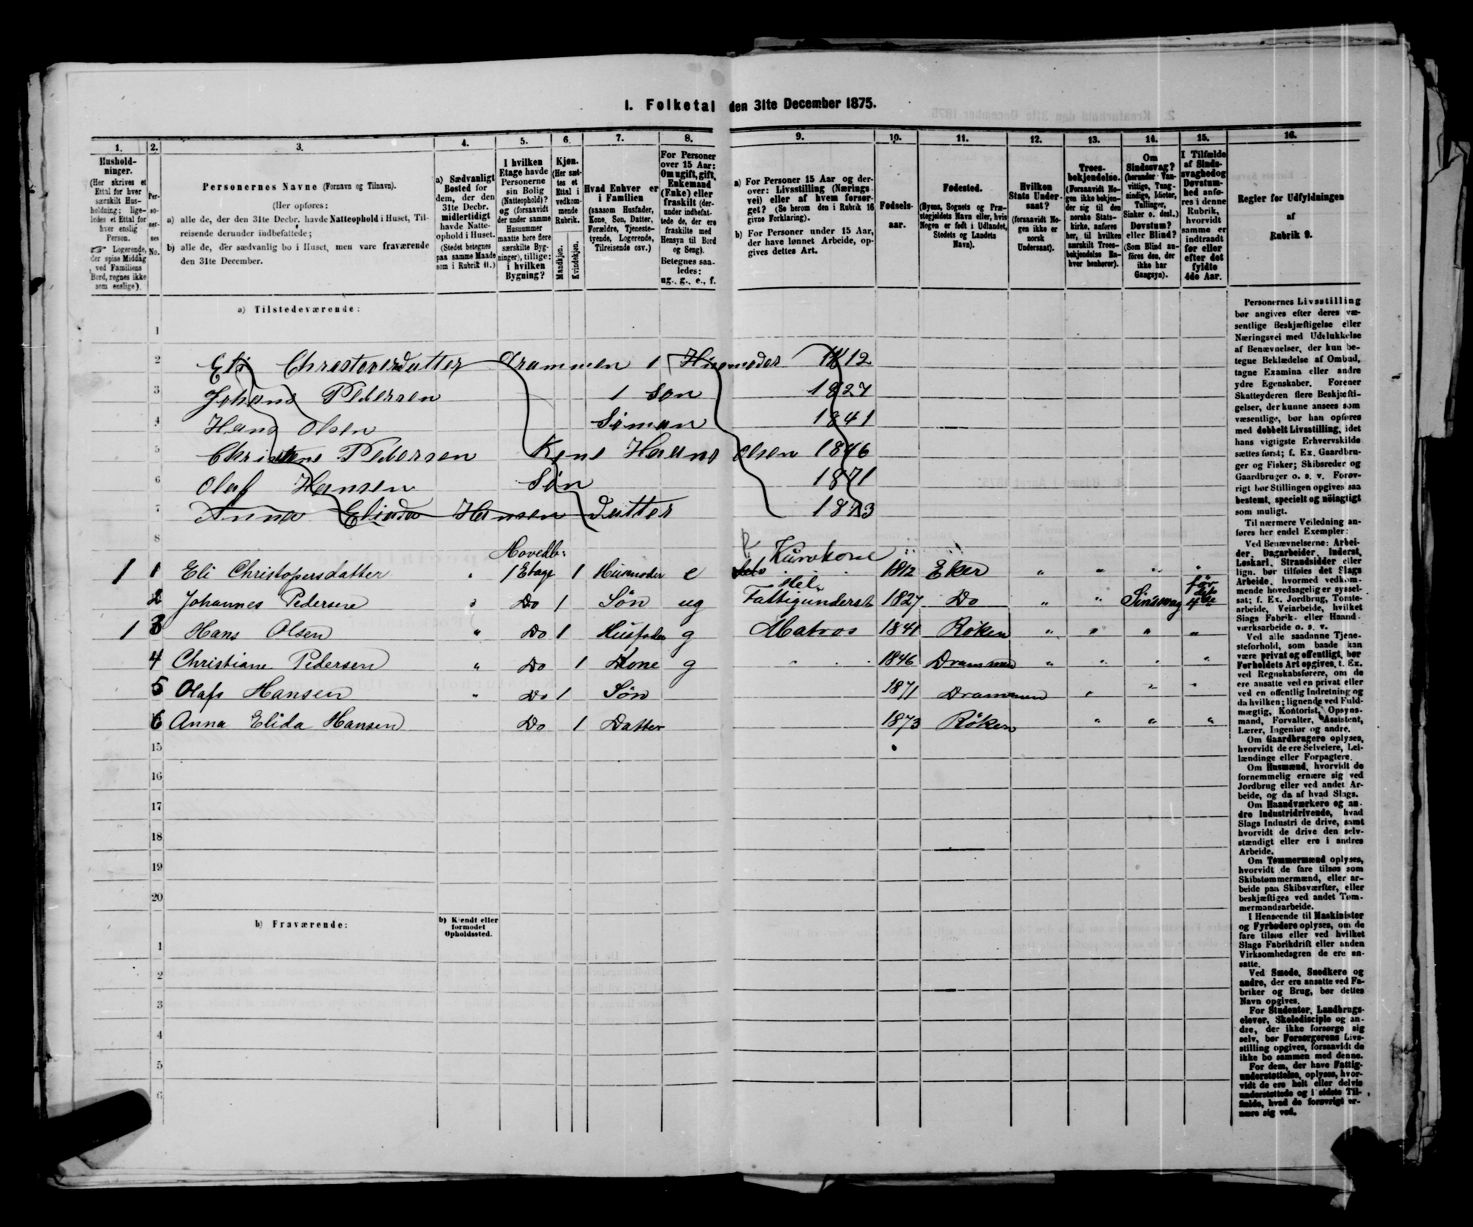 1. Folketal den 31te December 1875.
1. 2. 3. 4. 5. 6. 7. 8. 9. 10. 11. 12. 13. 14. 15. 16.
Husholdninger.
(Her skrives et Ettal for hver særskilt Husholdning; ligeledes et Ettal for hver enslig Person.
Logerende, der spise Middag ved Familiens Bord, regnes ikke som enslige).
Personernes No.
Personernes Navne (Fornavn og Tilnavn).
(Her opføres:
a) alle de, der den 31te Decbr. havde Natteophold i Huset, Tilreisende derunder indbefattede;
b) alle de, der sædvanlig bo i Huset, men vare fraværende den 31te December.
a) Sædvanligt Bosted for dem, der den 31te Decbr. midlertidigt havde Natteophold i Huset.
(Stedet betegnes paa samme Maade som i Rubrik 11.)
I hvilken Etage havde Personerne sin Bolig (Natteophold)? og (forsaavidt der under samme Husnummer maatte høre flere særskilte Bygninger), tillige: i hvilken Bygning?
Kjøn.
(Her sættes et Ettal i vedkommende Rubrik.
Mandkjøn.
Kvindekjøn.
Hvad Enhver er i Familien
(saasom Husfader, Kone, Søn, Datter, Forældre, Tjenestetyende, Logerende, Tilreisende osv.)
For Personer over 15 Aar: Om ugift, gift, Enkemand (Enke) eller fraskilt (derunder indbefattede de, der ere fraskilte med Hensyn til Bord og Seng).
Betegnes saaledes:
ug., g., e., f.
a) For Personer 15 Aar og derover: Livsstilling (Næringsvei) eller af hvem forsørget? (Se herom den i Rubrik 16 givne Forklaring).
b) For Personer under 15 Aar, der have lønnet Arbeide, opgives dettes Art.
Fødselsaar.
Fødested.
(Byens, Sognets og Præstegjeldets Navn eller, hvis Nogen er født i Udlandet, Stedets og Landets Navn).
Hvilken Stats Undersaat?
(forsaavidt Nogen ikke er norsk Undersaat).
Troesbekjendelse.
(Forsaavidt Nogen ikke bekjender sig til den norske Statskirke, anføres her, til hvilken særskilt Troesbekjendelse Enhver henhører).
Om Sindssvag? (herunder Vanvittige, Tungsindige, Idioter, Tullinger, Sinker o. desl.) Døvstum? eller Blind? (Som Blind anføres den, der ikke har Gangsyn).
I Tilfælde af Sindssvaghed og Døvstumhed anføres i denne Rubrik, hvorvidt samme er indtraadt før eller efter det fyldte 4de Aar.
Regler for Udfyldningen af Rubrik 9.
a) Tilstedeværende:
1
2 Eli Christoversdatter Drammen 1 Husmoder 1812
3 Johans Pedersen 1 Søn 1827
4 Hans Olsen Søman 1841
5 Christiane Pedersen Kone Hans Olsen 1846
6 Olaf Hansen Søn 1871
7 Anna Elida Hansen Datter 1873
8 Hovedb: Kårkone
1 1 Eli Christopersdatter " 1 Etage 1 Husmoder e 1812 Eker " " " "
Hel
2 Johannes Pedersene " Do 1 Søn ug Fattigunderst 1827 Do " " Sindsvag før det 4de
1 3 Hans Olsen " Do 1 Husfader g Matros 1841 Røken " " " "
4 Christiane Pedersen " Do 1 Kone g " " " 1846 Drammen " " " "
5 Olaf Hansen " Do 1 Søn 1871 Drammen " " "
6 Anna Elida Hansen Do 1 Datter 1873 Røken " " "
15
16
17
18
19
20
b) Fraværende:
b) Kjendt eller formodet Opholdssted.
1
2
3
4
5
6
Personernes Livsstilling
bør angives efter deres væ-
sentlige Beskjæftigelse eller
Næringsvei med Udelukkelse
af Benævnelser, der kun be-
tegne Beklædelse af Ombud,
tagne Examina eller andre
ydre Egenskaber. Forener
Skatteyderen flere Beskjæfti-
gelser, der kunne ansees som
væsentlige, bør han opføres
med dobbelt Livsstilling, idet
hans vigtigste Erhvervskilde
sættes først; f. Ex. Gaardbru-
ger og Fisker; Skibsreder og
Gaardbruger o. s. v. Forøv-
rigt bør Stillingen opgives saa
bestemt, specielt og nøiagtigt
som muligt.
Til nærmere Veiledning an-
føres her endel Exempler:
Ved Benævnelserne: Arbei-
der, Dagarbeider, Inderst,
Løskarl, Strandsidder eller
lign. bør tilføies det Slags
Arbeide, hvormed vedkom-
mende hovedsagelig er syssel-
sat; f. Ex. Jordbrug, Tomte-
arbeide, Veiarbeide, hvilket
Slags Fabrik- eller Haand-
værksarbeide o. s. v.
Ved alle saadanne Tjene-
steforhold, som baade kan
være privat og offentligt, bør
Forholdets Art opgives, t. Ex.
ved Regnskabsførere, om de
ere ansatte ved en privat eller
ved en offentlig Indretning og
da hvilken; lignende ved Fuld-
mægtig, Kontorist, Opsyns-
mand, Forvalter, Assistent,
Lærer, Ingeniør og andre.
Om Gaardbrugere oplyses,
hvorvidt de ere Selveiere, Lei-
lændinge eller Forpagtere.
Om Husmænd, hvorvidt de
fornemmelig ernære sig ved
Jordbrug eller ved andet Ar-
beide, og da af hvad Slags.
Om Haandværkere og an-
dre Industridrivende, hvad
Slags Industri de drive, samt
hvorvidt de drive den selv-
stændigt eller ere i andres
Arbeide.
Om Tømmermænd oplyses,
hvorvidt de fare tilsøs som
Skibstømmermænd, eller ar-
beide paa Skibsværfter, eller
beskjæftiges ved andet Tøm-
mermandsarbeide.
I Henseende til Maskinister
og Fyrbødere oplyses, om de
fare tilsøs eller ved hvilket
Slags Fabrikdrift eller anden
Virksomhedsgren de ere an-
satte.
Ved Smede, Snedkere og
andre, der ere ansatte ved Fa-
briker og Brug, bør dettes
Navn opgives.
For Studenter, Landbrugs-
elever, Skoledisciple og an-
dre, der ikke forsørge sig
selv, bør Forsørgerens Livs-
stilling opgives, forsaavidt de
ikke bo sammen med denne.
For dem, der have Fattig-
understøttelse, oplyses, hvor-
vidt de ere helt eller delvis
understøttede og i sidste Til-
fælde, hvad de forøvrigt er-
nære sig ved.